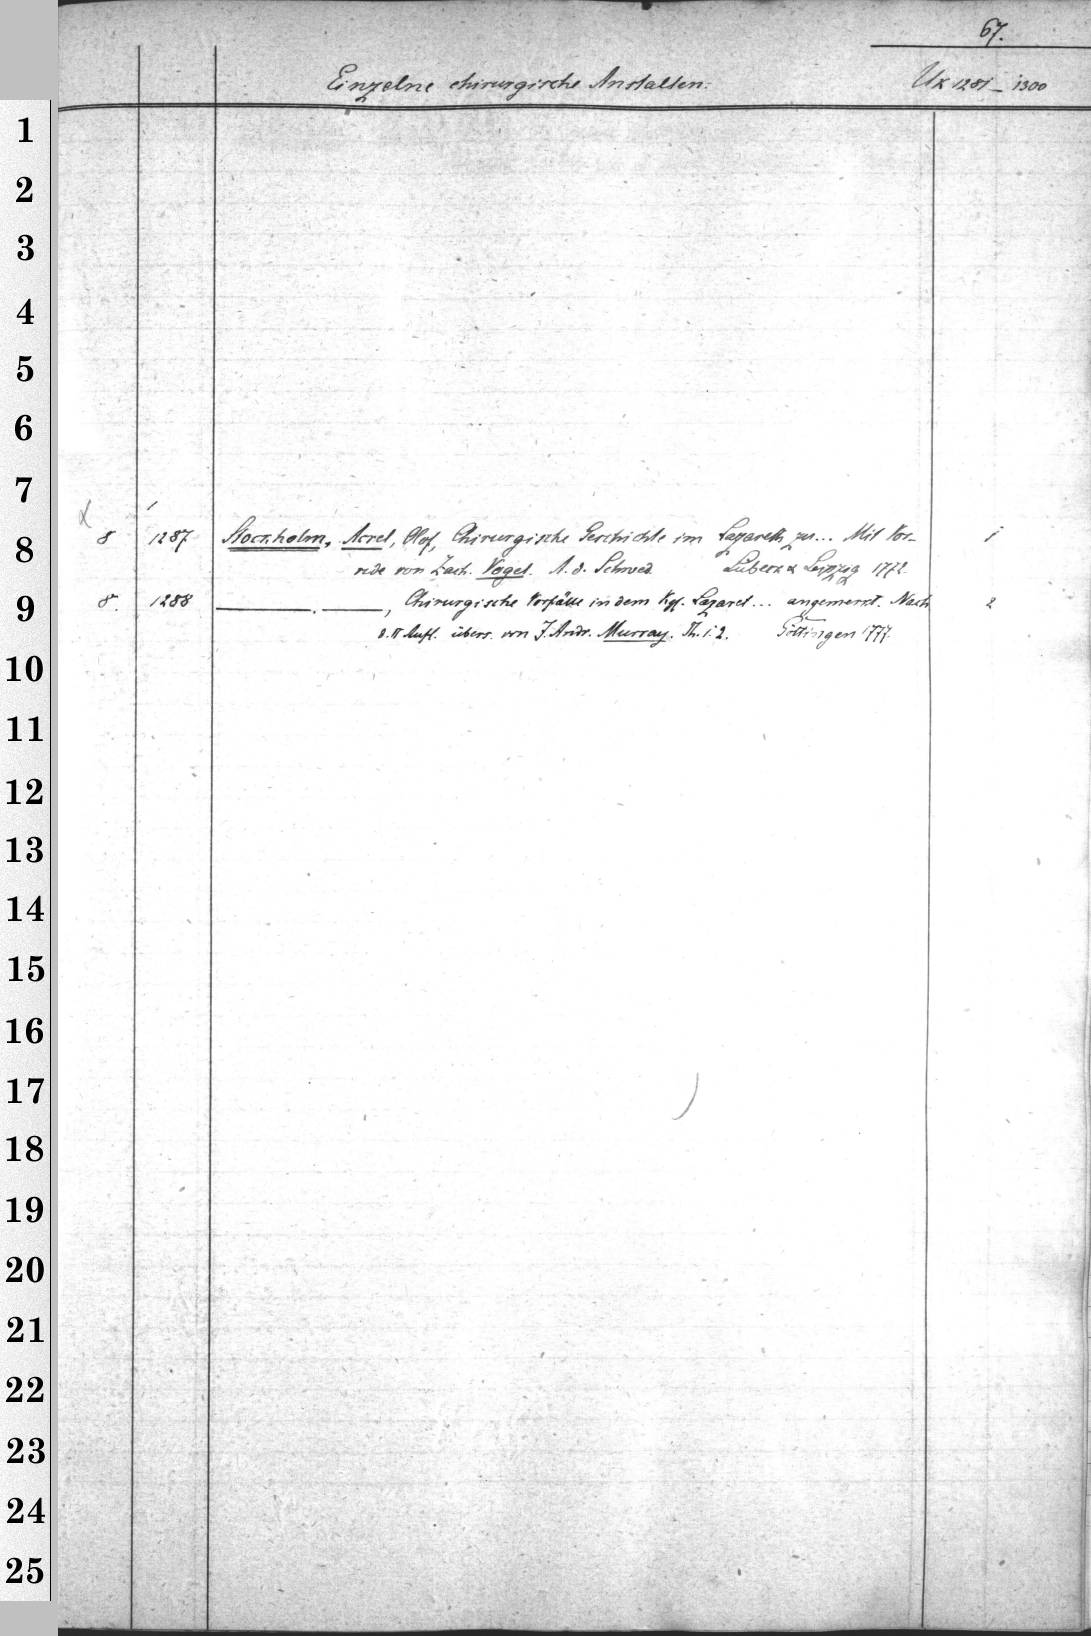 67.
Einzelne chirurgische Anstalten. Ux 1281 – 1300
1
2
3
4
5
6
7
8
8 1287 Stockholm, Acrel, Olof, Chirurgische Geschichte im Lazareth zu... Mit Vor- 1
rede von Zach. Vogel. A. d. Schwed. Lübeck & Leipzig 1772
9
8. 1288 ———. ———, Chirurgische Vorfälle in dem Kgl. Lazaret... angemerkt. Nach 2
d. II Aufl. übers. von J. Andr. Murray. Th. 1. 2. Göttingen 1777.
10
11
12
13
14
15
16
17
18
19
20
21
22
23
24
25